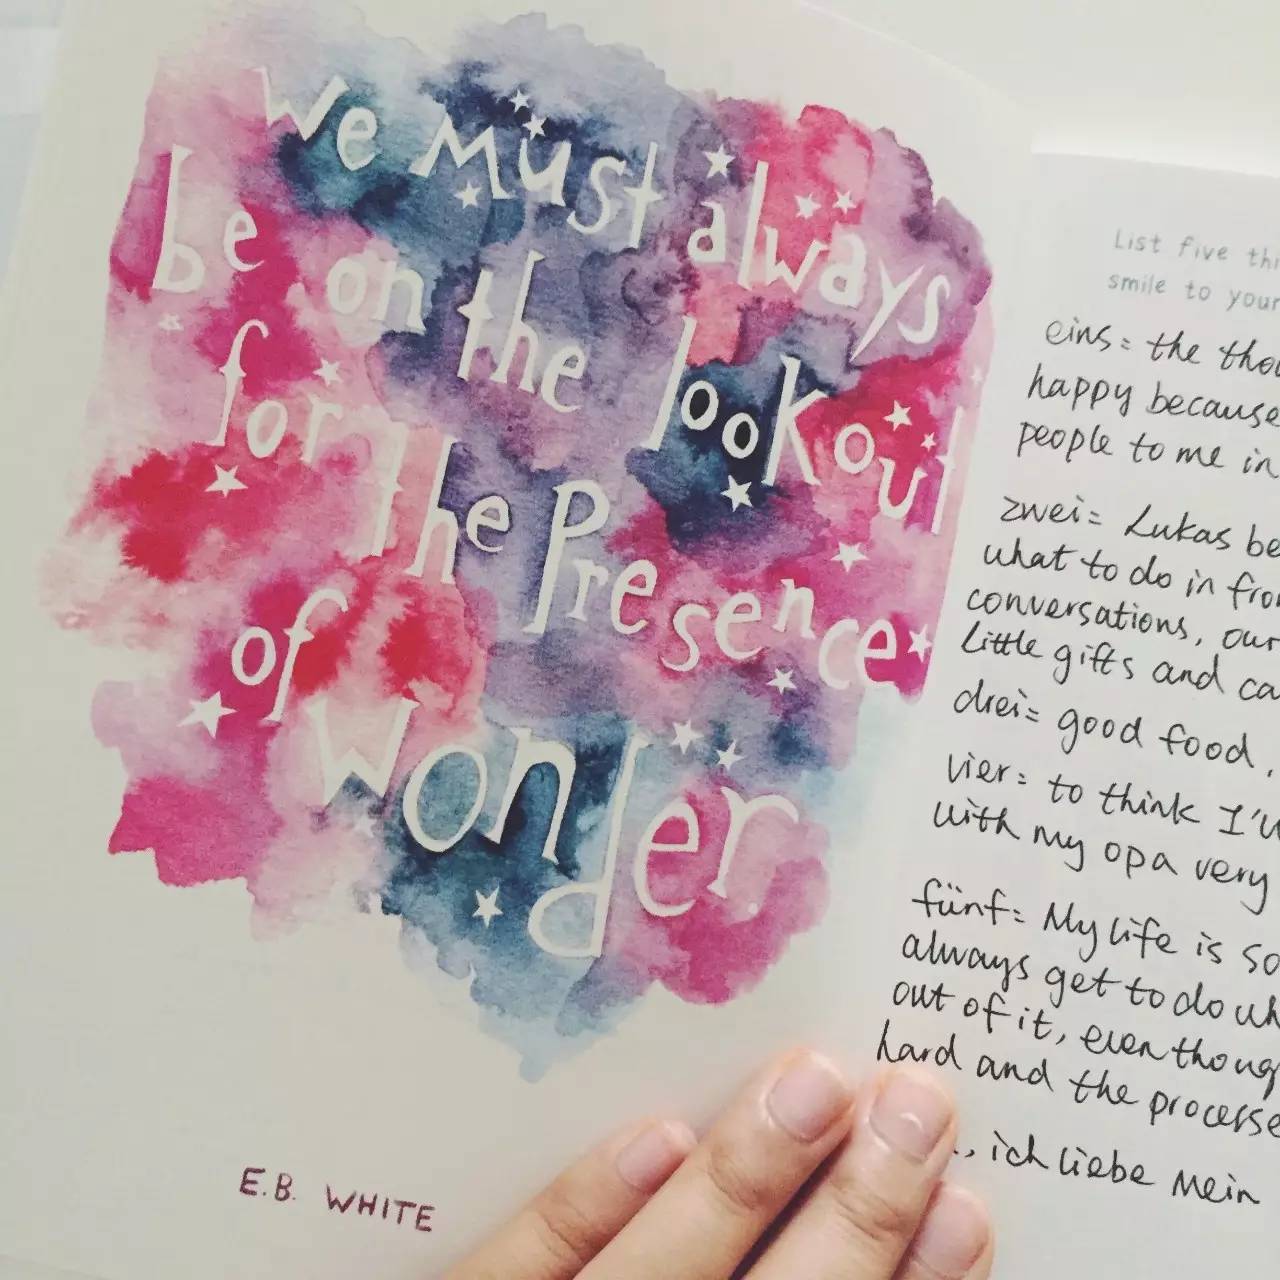 We Must always
be on the lookout
for the Presence
of wonder.
E.B. WHITE
List five
smile to your
eins = the
happy because
people to me in
zwei = Lukas
what to do in
conversations, our
little gifts and
drei = good food,
vier = to think
with my opa very
fünf = My life is
always get to do
out of it, even
hard and the
, ich liebe Mein